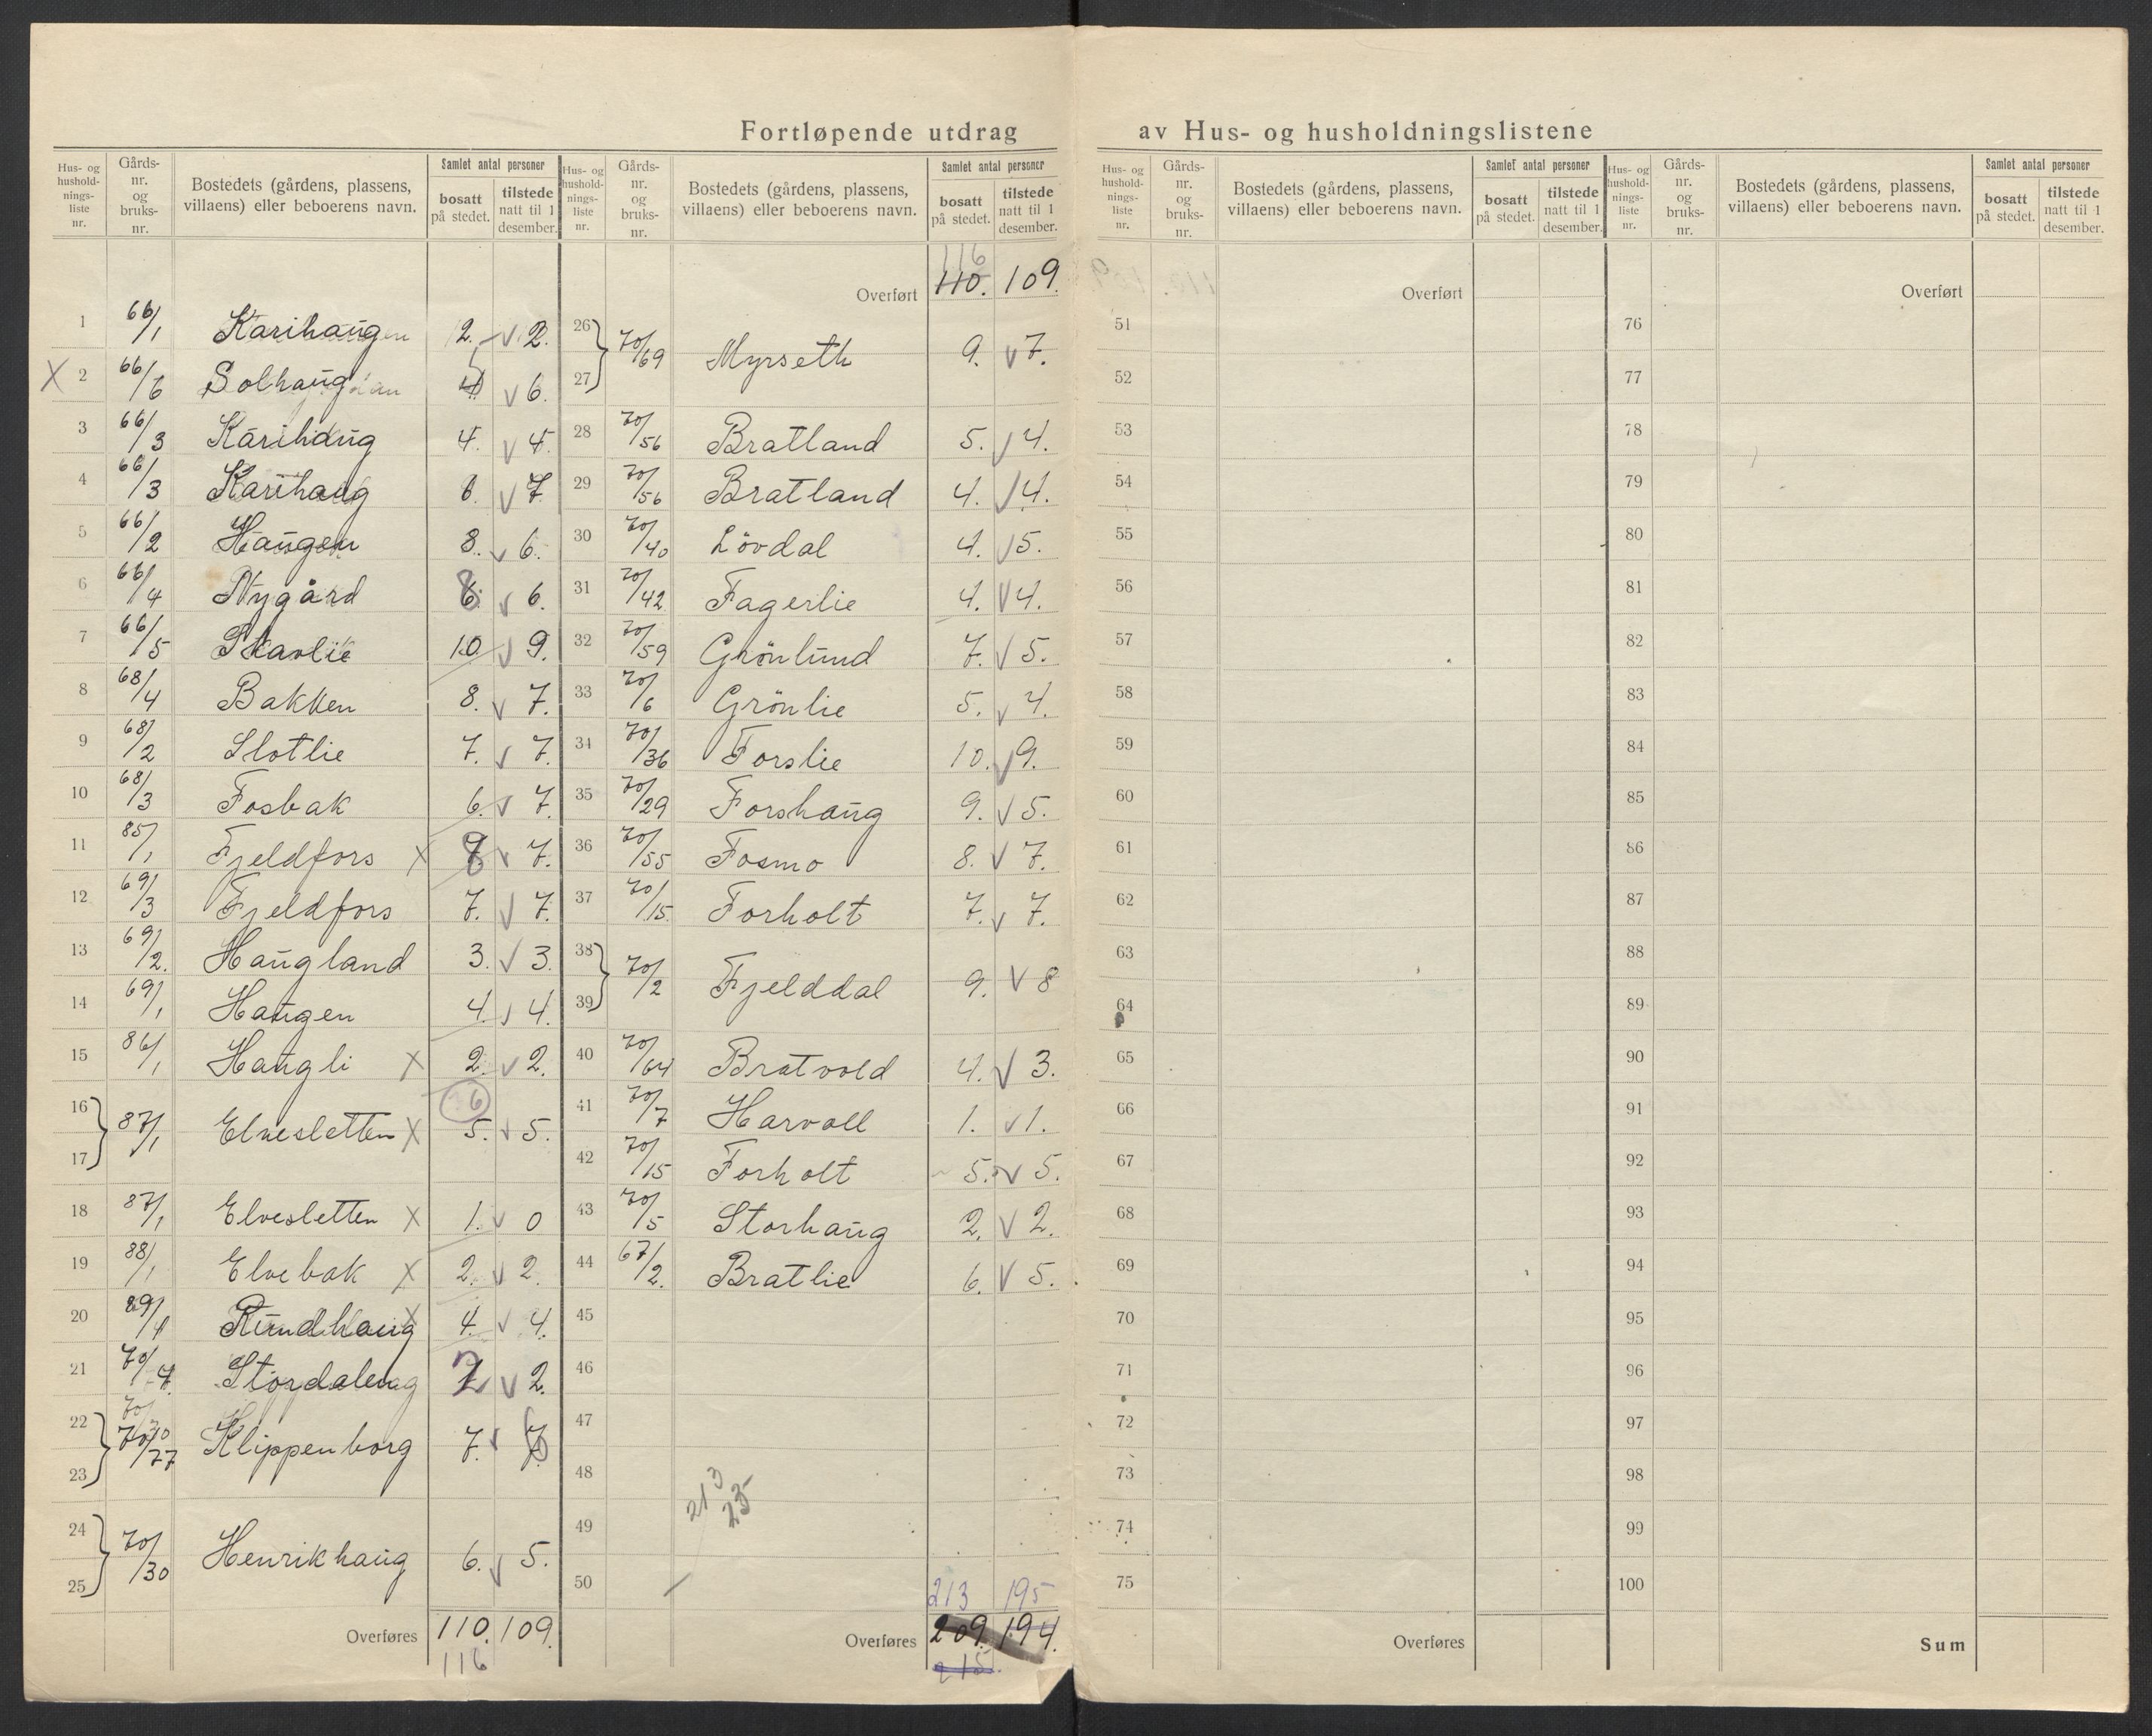 Fortløpende utdrag av Hus- og husholdningslistene
Hus- og hushold-nings-liste nr. | Gårds-nr. og bruks-nr. | Bostedets (gårdens, plassens, villaens) eller beboerens navn. | Samlet antal personer | bosatt på stedet. | tilstede natt til 1 desember.
1 66/1 Karihaugen 2. √ 2.
X 2 66/6 Solhaug 5 √ 6.
3 66/3 Karihaug 4. √ 4.
4 66/3 Karihaug 6. √ 7
5 66/2 Haugen 8. √ 6.
6 66/4 Nygård 8 √ 6.
7 66/5 Skavlie 10 √ 9.
8 68/4 Bakken 8. √ 7.
9 68/2 Slotlie 7. √ 7.
10 68/3 Fosbak 6. √ 7.
11 85/1 Fjeldfors X 8 √ 7.
12 69/3 Fjeldfors 7. √ 7.
13 69/2. Haugland 3. √ 3.
14 69/1 Haugen 4. √ 4.
15 86/1 Haugli X 2. √ 2.
16 17 87/1 Elvesletten X 6 5. √ 5.
18 87/1 Elvesletten X 1. √ 0
19 88/1 Elvebak X 2. √ 2.
20 89/1 Rundhaug X 4. √ 4.
21 70/7. Stordal 2 √ 2.
22 23 70/77 Klippenborg 7. √ 7
24 25 70/30 Henrikhaug 6. √ 5.
Overføres 110. 109.
116
Hus- og hushold-nings-liste nr. | Gårds-nr. og bruks-nr. | Bostedets (gårdens, plassens, villaens) eller beboerens navn. | Samlet antal personer | bosatt på stedet. | tilstede natt til 1 desember.
116
Overført 110. 109.
26 27 70/69 Myrseth 9. √ 7.
28 70/56 Bratland 5. √ 4.
29 70/56 Bratland 4. √ 4.
30 70/40 Lövdal 4. √ 5.
31 70/42 Fagerlie 4. √ 4.
32 70/59 Grönlund 7. √ 5.
33 70/6 Grönlie 5. √ 4.
34 70/36 Forslie 10. √ 9.
35 70/29 Forshaug 9. √ 5.
36 70/55 Fosmo 8. √ 7.
37 70/15. Forholt 7. √ 7.
38 39 70/2 Fjelddal 9. √ 8
40 70/64 Bratvold 4. √ 3.
41 70/7 Harvoll 1. √ 1.
42 70/15 Forholt 5. √ 5.
43 70/5 Storhaug 2. √ 2.
44 67/2. Bratlie 6. √ 5.
45
46
47
48
213
49
50
213 195
Overføres 209. 194.
215.
Hus- og hushold-nings-liste nr. | Gårds-nr. og bruks-nr. | Bostedets (gårdens, plassens, villaens) eller beboerens navn. | Samlet antal personer | bosatt på stedet. | tilstede natt til 1 desember.
Overført
51
52
53
54
55
56
57
58
59
60
61
62
63
64
65
66
67
68
69
70
71
72
73
74
75
Overføres
Hus- og hushold-nings-liste nr. | Gårds-nr. og bruks-nr. | Bostedets (gårdens, plassens, villaens) eller beboerens navn. | Samlet antal personer | bosatt på stedet. | tilstede natt til 1 desember.
Overført
76
77
78
79
80
81
82
83
84
85
86
87
88
89
90
91
92
93
94
95
96
97
98
99
100
Sum